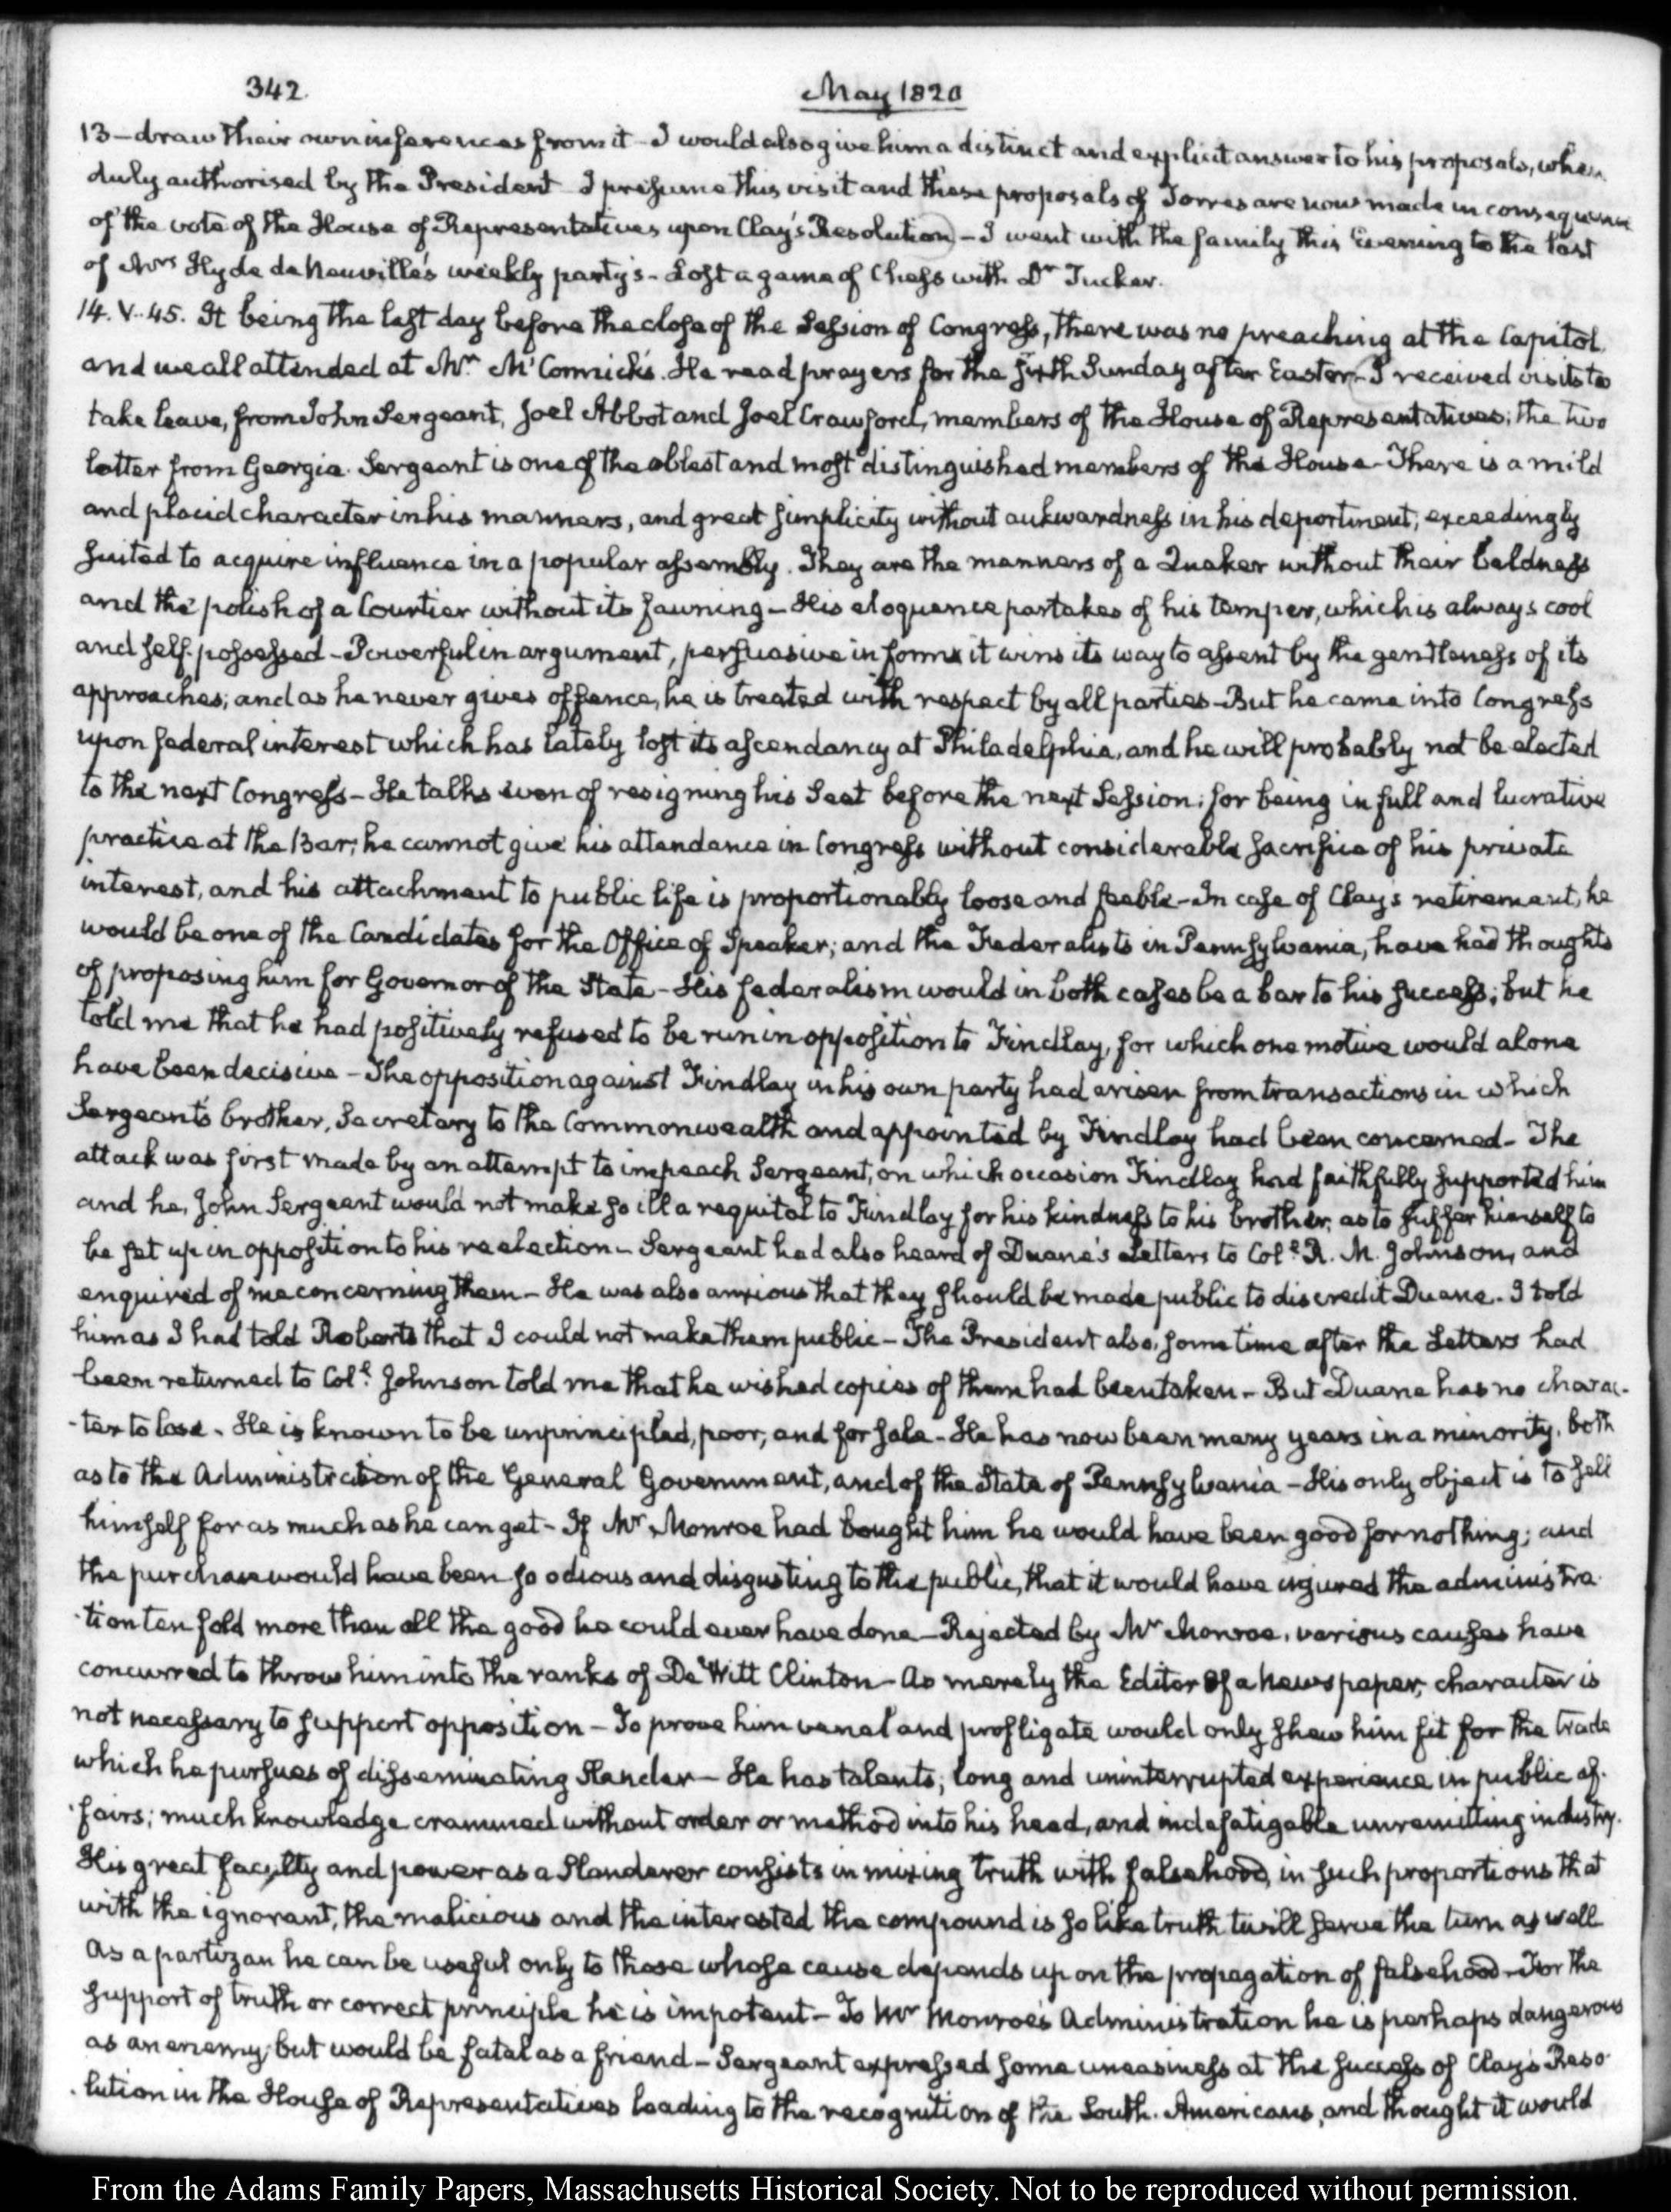 342. May 1820
13 — draw their own inferences from it - I would also give him a distinct and explicit answer to his proposals, when
duly authorised by the President I presume this visit and these proposals of Torres are now made in consequence
of the vote of the House of Representatives upon Clay's Resolution) - I went with the family this Evening to the last
of Mrs Hyde de Neuville's weekly party's - Lost a game of Chess with Dr Tucker.
14. V. 45. It being the last day before the close of the Session of Congress, there was no preaching at the Capitol.
and we all attended at Mr McCormick's. He read prayers for the fifth Sunday after Easter - I received visits to
take leave, from John Sergeant, Joel Abbot and Joel Crawford, members of the House of Representatives; the two
latter from Georgia. Sergeant is one of the ablest and most distinguished members of the House - There is a mild
and placid character in his manners, and great simplicity without aukwardness in his deportment; exceedingly
suited to acquire influence in a popular assembly. They are the manners of a Quaker without their boldness
and the polish of a Courtier without its fawning - His eloquence partakes of his temper, which is always cool
and self-possessed - Powerful in argument, persuasive in form it wins its way to assent by the gentleness of its
approaches; and as he never gives offence, he is treated with respect by all parties - But he came into Congress
upon federal interest which has lately lost its ascendancy at Philadelphia, and he will probably not be elected
to the next Congress - He talks even of resigning his Seat before the next Session; for being in full and lucrative
practice at the Bar; he cannot give his attendance in Congress without considerable sacrifice of his private
interest, and his attachment to public life is proportionably loose and feeble - In case of Clay's retirement, he
would be one of the Candidates for the Office of Speaker; and the Federalists in Pennsylvania, have had thoughts
of proposing him for Governor of the State - His federalism would in both cases be a bar to his success; but he
told me that he had positively refused to be run in opposition to Findlay, for which one motive would alone
have been decisive - The opposition against Findlay in his own party had arisen from transactions in which
Sergeant's brother, Secretary to the Commonwealth and appointed by Findlay had been concerned - The
attack was first made by an attempt to impeach Sergeant, on which occasion Findlay had faithfully supported him
and he, John Sergeant would not make so ill a requital to Findlay for his kindness to his brother, as to suffer himself to
be set up in opposition to his reelection - Sergeant had also heard of Duane's Letters to Coll. R. M. Johnson, and
enquired of me concerning them - He was also anxious that they should be made public to discredit Duane. I told
him as I had told Roberts that I could not make them public - The President also, some time after the Letters had
been returned to Coll. Johnson told me that he wished copies of them had been taken - But Duane has no charac-
-ter to lose. He is known to be unprincipled, poor, and for sale - He has now been many years in a minority, both
as to the Administration of the General Government, and of the State of Pennsylvania - His only object is to sell
himself for as much as he can get - If Mr Monroe had bought him he would have been good for nothing; and
the purchase would have been so odious and disgusting to the public, that it would have injured the administra-
-tion ten fold more than all the good he could ever have done - Rejected by Mr Monroe, various causes have
concurred to throw him into the ranks of De Witt Clinton - As merely the Editor of a Newspaper, character is
not necessary to support opposition - To prove him venal and profligate would only shew him fit for the trade
which he pursues of disseminating Slander - He has talents; long and uninterrupted experience in public af-
-fairs; much knowledge crammed without order or method into his head, and indefatigable unremitting industry.
His great faculty and power as a Slanderer consists in mixing truth with falsehood, in such proportions that
with the ignorant, the malicious and the interested the compound is so like truth twill serve the turn as well
As a partizan he can be useful only to those whose cause depends upon the propagation of falsehood - For the
support of truth or correct principle he is impotent - To Mr Monroe's Administration he is perhaps dangerous
as an enemy; but would be fatal as a friend - Sergeant expressed some uneasiness at the success of Clay's Reso-
-lution in the House of Representatives leading to the recognition of the South-Americans, and thought it would
From the Adams Family Papers, Massachusetts Historical Society. Not to be reproduced without permission.